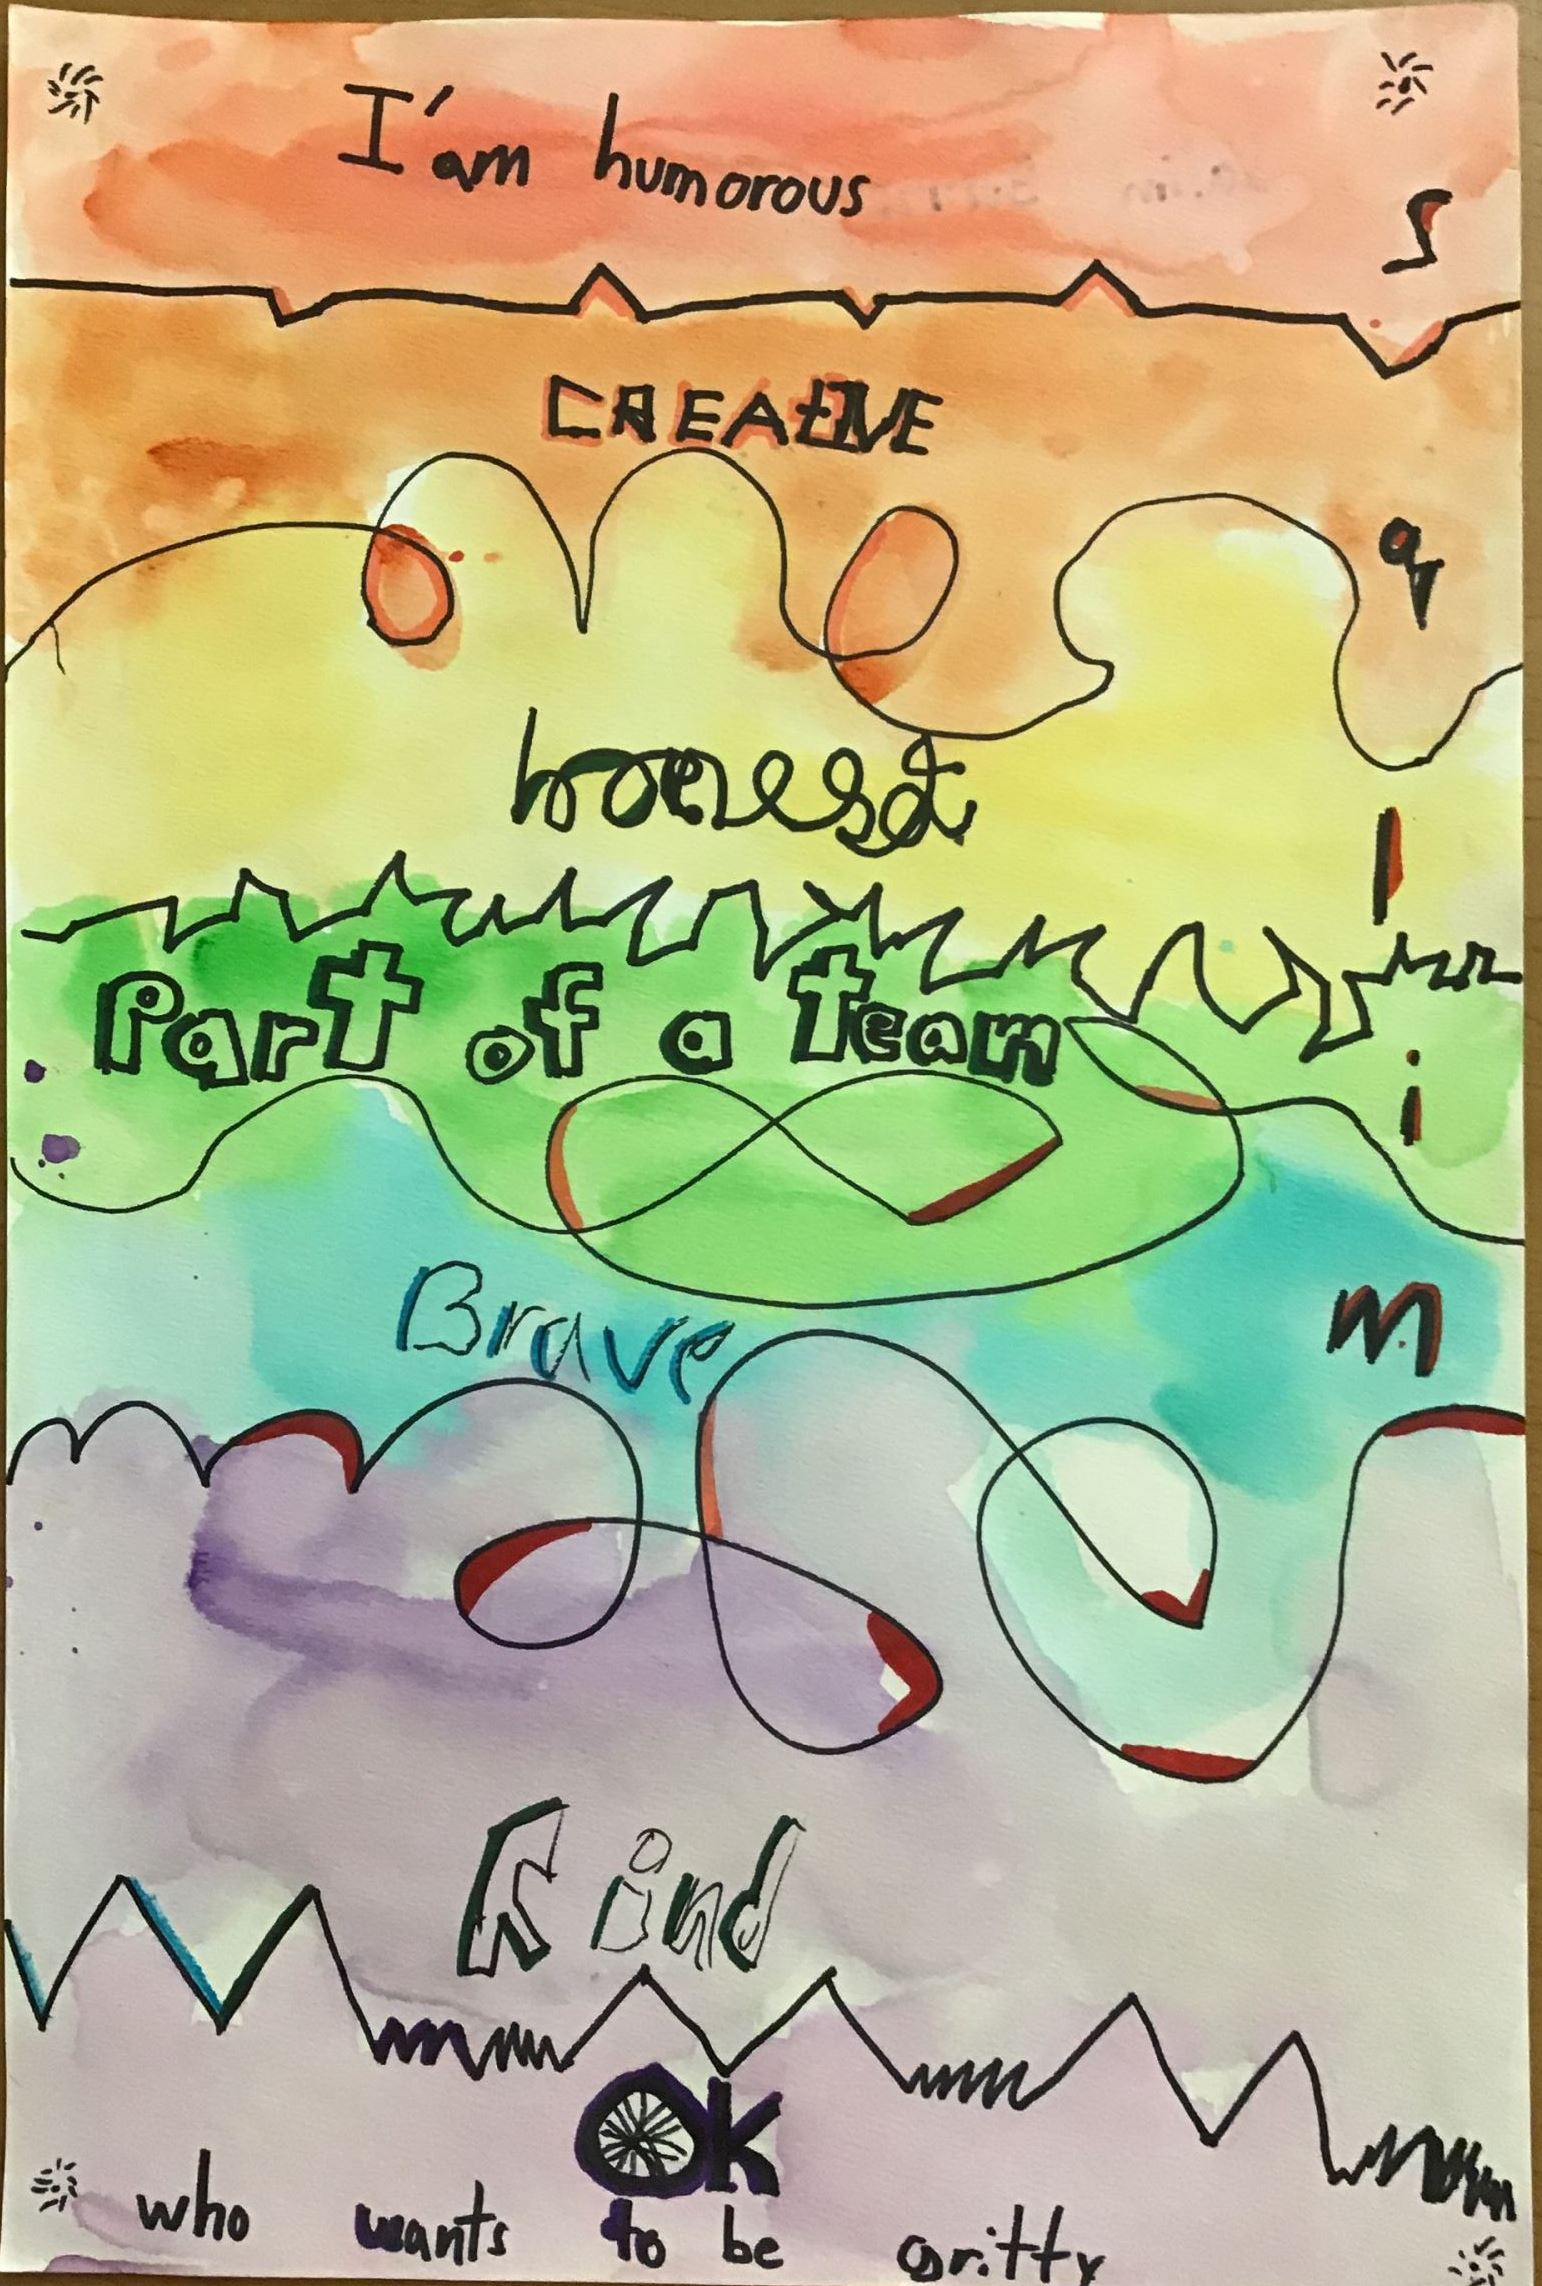 I'am humorous
CREATIVE
honest
Part of a Team
Brave
Kind
OK
who wants to be gritty
S
a
l
i
m